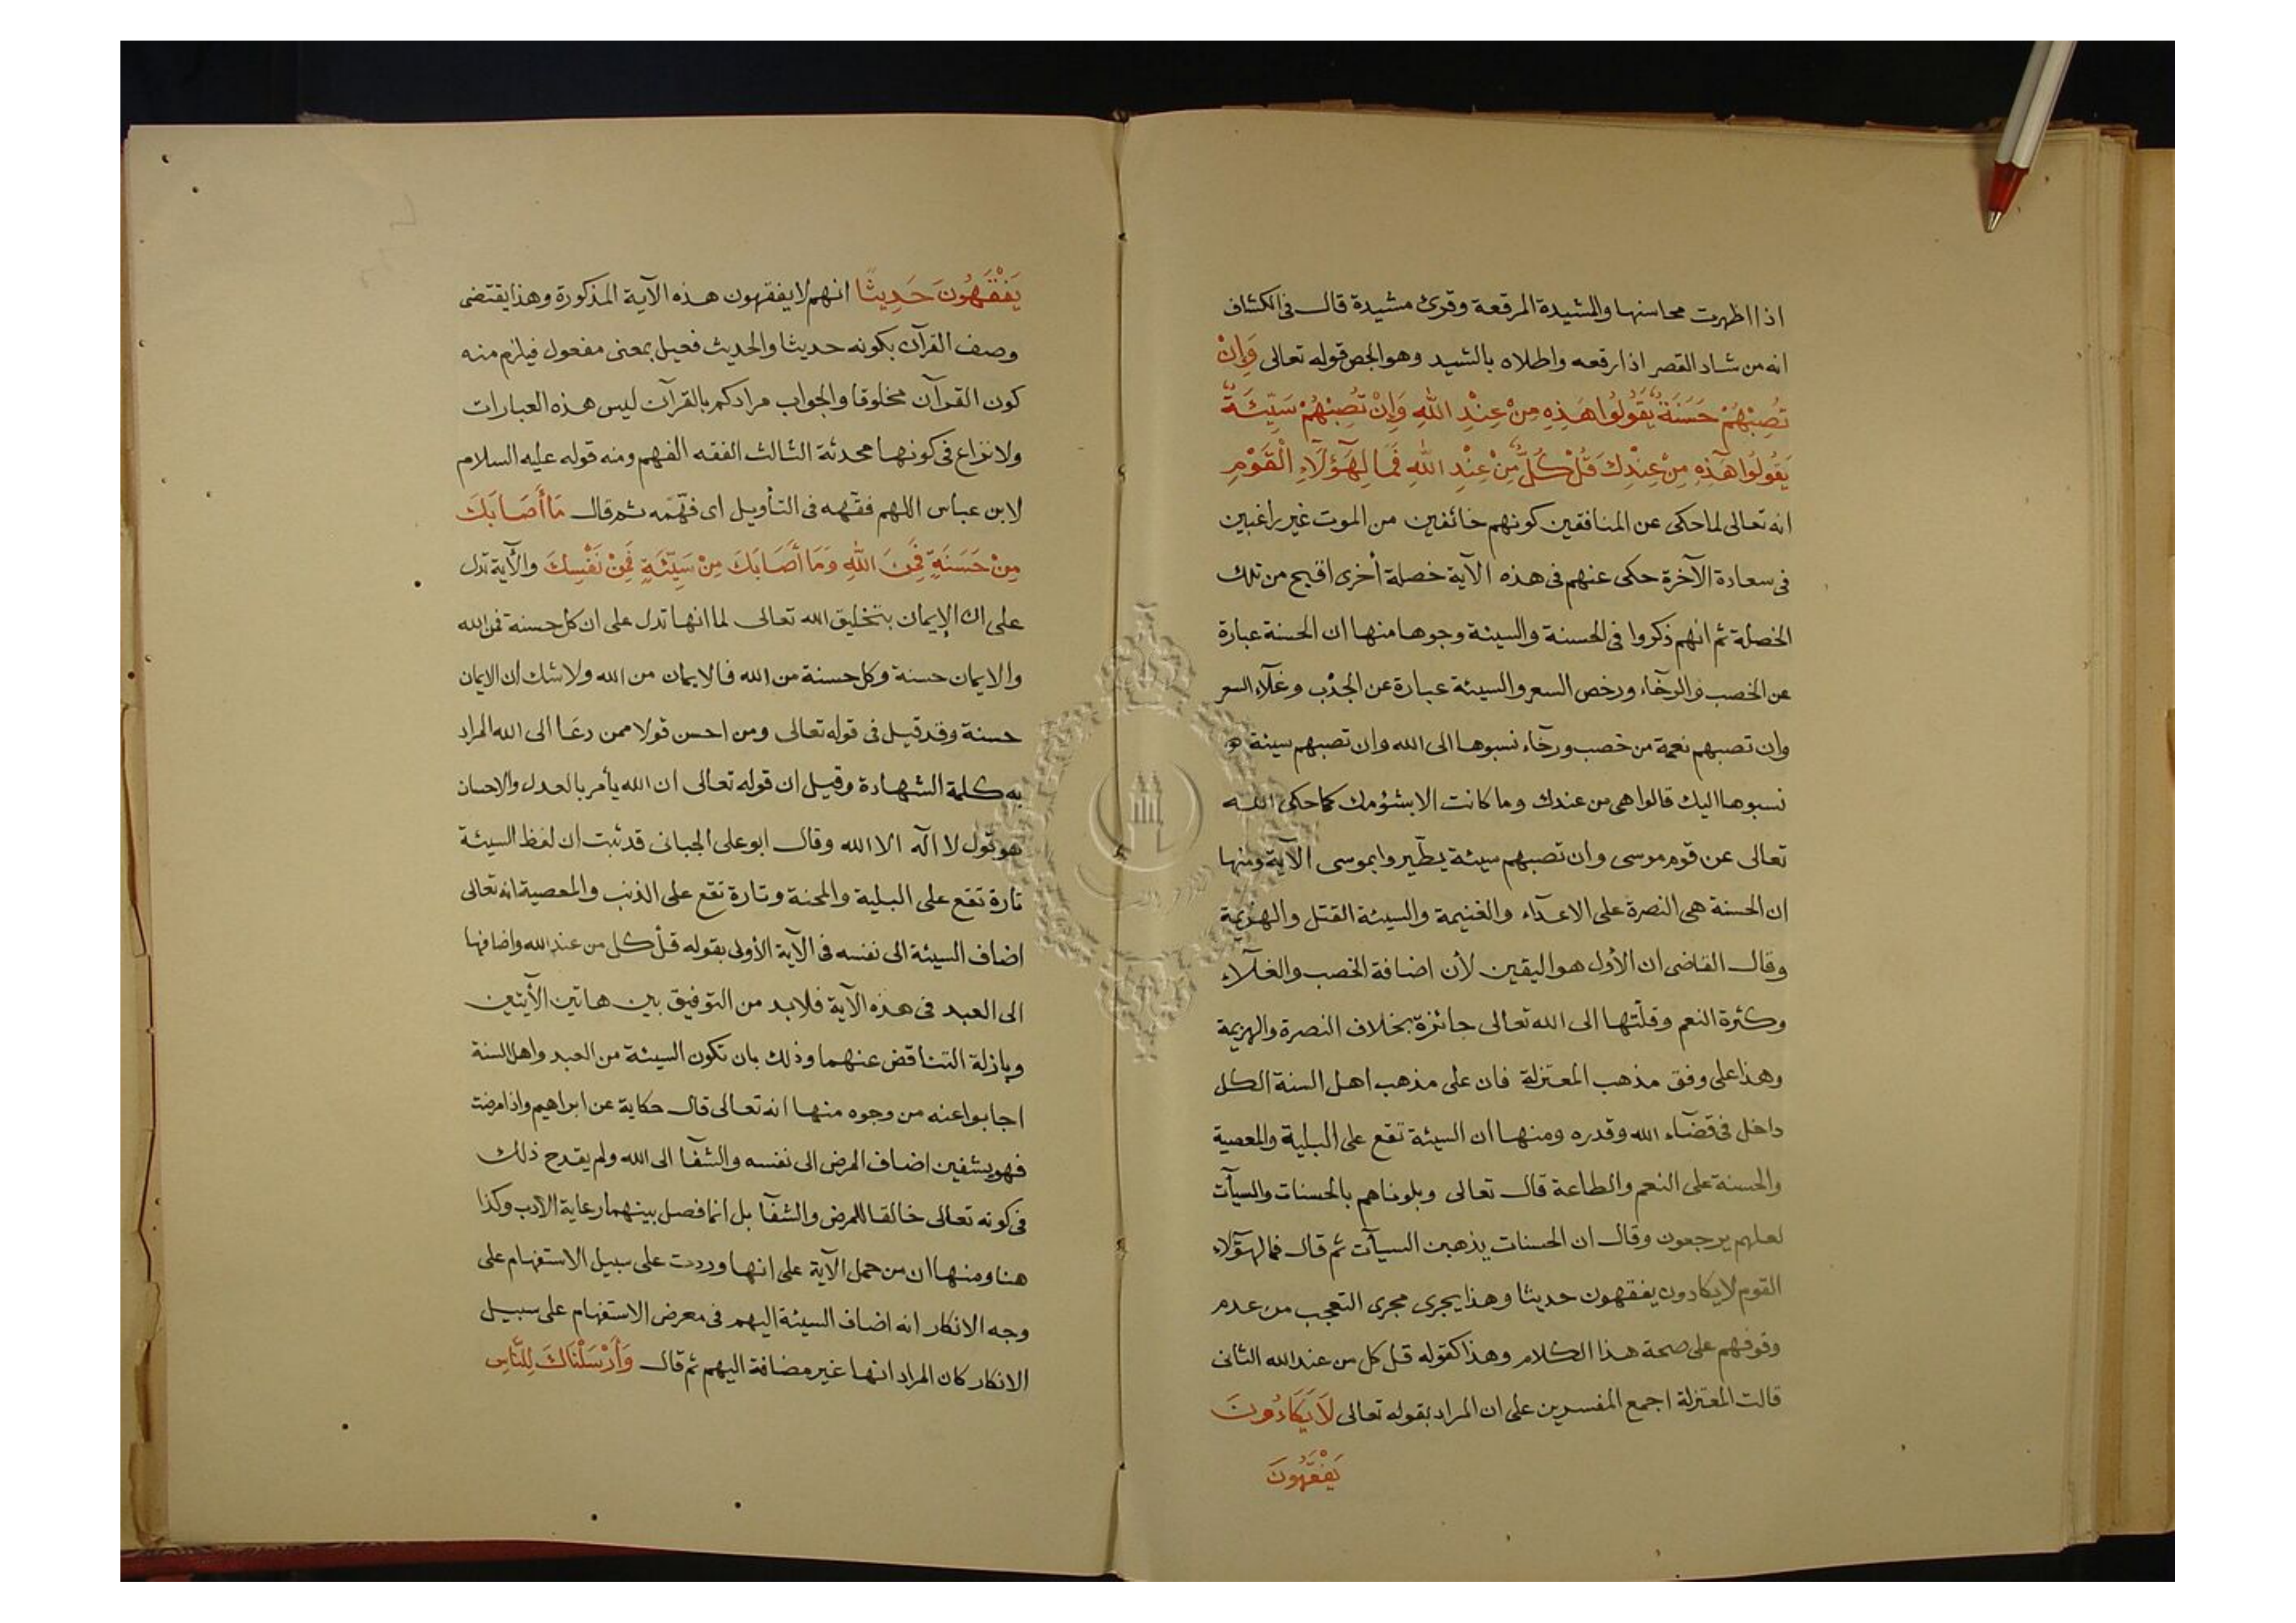 اذا اظهرت محاسنها والمشيدة المرقعة وقرئ مشيدة قال فى الكشاف
انه من شاد القصر اذا رقعه واطلاه بالشيد وهو الجص قوله تعالى وَإِنْ
تُصِبْهُمْ حَسَنَةٌ يَقُولُوا هَذِهِ مِنْ عِنْدِ اللهِ وَإِنْ تُصِبْهُمْ سَيِّئَةٌ
يَقُولُوا هَذِهِ مِنْ عِنْدِكَ قُلْ كُلٌّ مِنْ عِنْدِ اللهِ فَمَالِ هَؤُلَآءِ الْقَوْمِ
انه تعالى لما حكى عن المنافقين كونهم خائفين من الموت غير راغبين
فى سعادة الآخرة حكى عنهم فى هذه الآية خصلة أخرى اقبح من تلك
الخصلة ثم انهم ذكروا فى الحسنة والسيئة وجوها منها ان الحسنة عبارة
عن الخصب والرخآء ورخص السعر والسيئة عبارة عن الجدب وغلآء السعر
وان تصبهم نعمة من خصب ورخآء نسبوها الى الله وان تصبهم سيئة
نسبوها اليك قالوا هى من عندك وما كانت الا بشؤمك كما حكى الله
تعالى عن قوم موسى وان تصبهم سيئة يطّيروا بموسى الآية ومنها
ان الحسنة هى النصرة على الاعدآء والغنيمة والسيئة القتل والهزيمة
وقال القاضى ان الأول هو اليقين لأن اضافة الخصب والغلآء
وكثرة النعم وقلّتها الى الله تعالى جائزة بخلاف النصرة والهزيمة
وهذا على وفق مذهب المعتزلة فان على مذهب اهل السنة الكل
داخل فى قضآء الله وقدره ومنها ان السيئة تقع على البلية والمعصية
والحسنة على النعم والطاعة قال تعالى وبلوناهم بالحسنات والسيآت
لعلهم يرجعون وقال ان الحسنات يذهبن السيآت ثم قال فمال هؤلآء
القوم لا يكادون يفقهون حديثا وهذا يجرى مجرى التعجب من عدم
وقوفهم على صحة هذا الكلام وهذا كقوله قل كل من عند الله الثانى
قالت المعتزلة اجمع المفسرين على ان المراد بقوله تعالى لَا يَكَادُونَ
يَفْقَهُونَ
يَفْقَهُونَ حَدِيثًا انهم لا يفقهون هذه الآية المذكورة وهذا يقتضى
وصف القرآن بكونه حديثا والحديث فعيل بمعنى مفعول فيلزم منه
كون القرآن مخلوقا والجواب مرادكم بالقرآن ليس هذه العبارات
ولا نزاع فى كونها محدثة الثالث الفقه الفهم ومنه قوله عليه السلام
لابن عباس اللهم فقّهه فى التأويل اى فهّمه ثم قال مَا أَصَابَكَ
مِنْ حَسَنَةٍ فَمِنَ اللهِ وَمَا أَصَابَكَ مِنْ سَيِّئَةٍ فَمِنْ نَفْسِكَ والآية تدل
على ان الإيمان بتخليق الله تعالى لما انها تدل على ان كل حسنة فمن الله
والايمان حسنة وكل حسنة من الله فالايمان من الله ولا شك ان الايمان
حسنة وقد قيل فى قوله تعالى ومن احسن قولا ممن دعا الى الله المراد
به كلمة الشهادة وقيل ان قوله تعالى ان الله يأمر بالعدل والاحسان
هو قول لا اله الا الله وقال ابو على الجبائى قد ثبت ان لفظ السيئة
تارة تقع على البلية والمحنة وتارة تقع على الذنب والمعصية انه تعالى
اضاف السيئة الى نفسه فى الآية الأولى بقوله قل كل من عند الله واضافها
الى العبد فى هذه الآية فلا بد من التوفيق بين هاتين الأيتين
وبإزلة التناقض عنهما وذلك بان تكون السيئة من العبد واهل السنة
اجابوا عنه من وجوه منها انه تعالى قال حكاية عن ابراهيم واذا مرضت
فهو يشفين اضاف المرض الى نفسه والشفآ الى الله ولم يقدح ذلك
فى كونه تعالى خالقا للمرض والشفآ بل انما فصل بينهما رعاية الادب وكذا
هنا ومنها ان من حمل الآية على انها وردت على سبيل الاستفهام على
وجه الانكار انه اضاف السيئة اليهم فى معرض الاستفهام على سبيل
الانكار كان المراد انها غير مضافة اليهم ثم قال وَأَرْسَلْنَاكَ لِلنَّاسِ